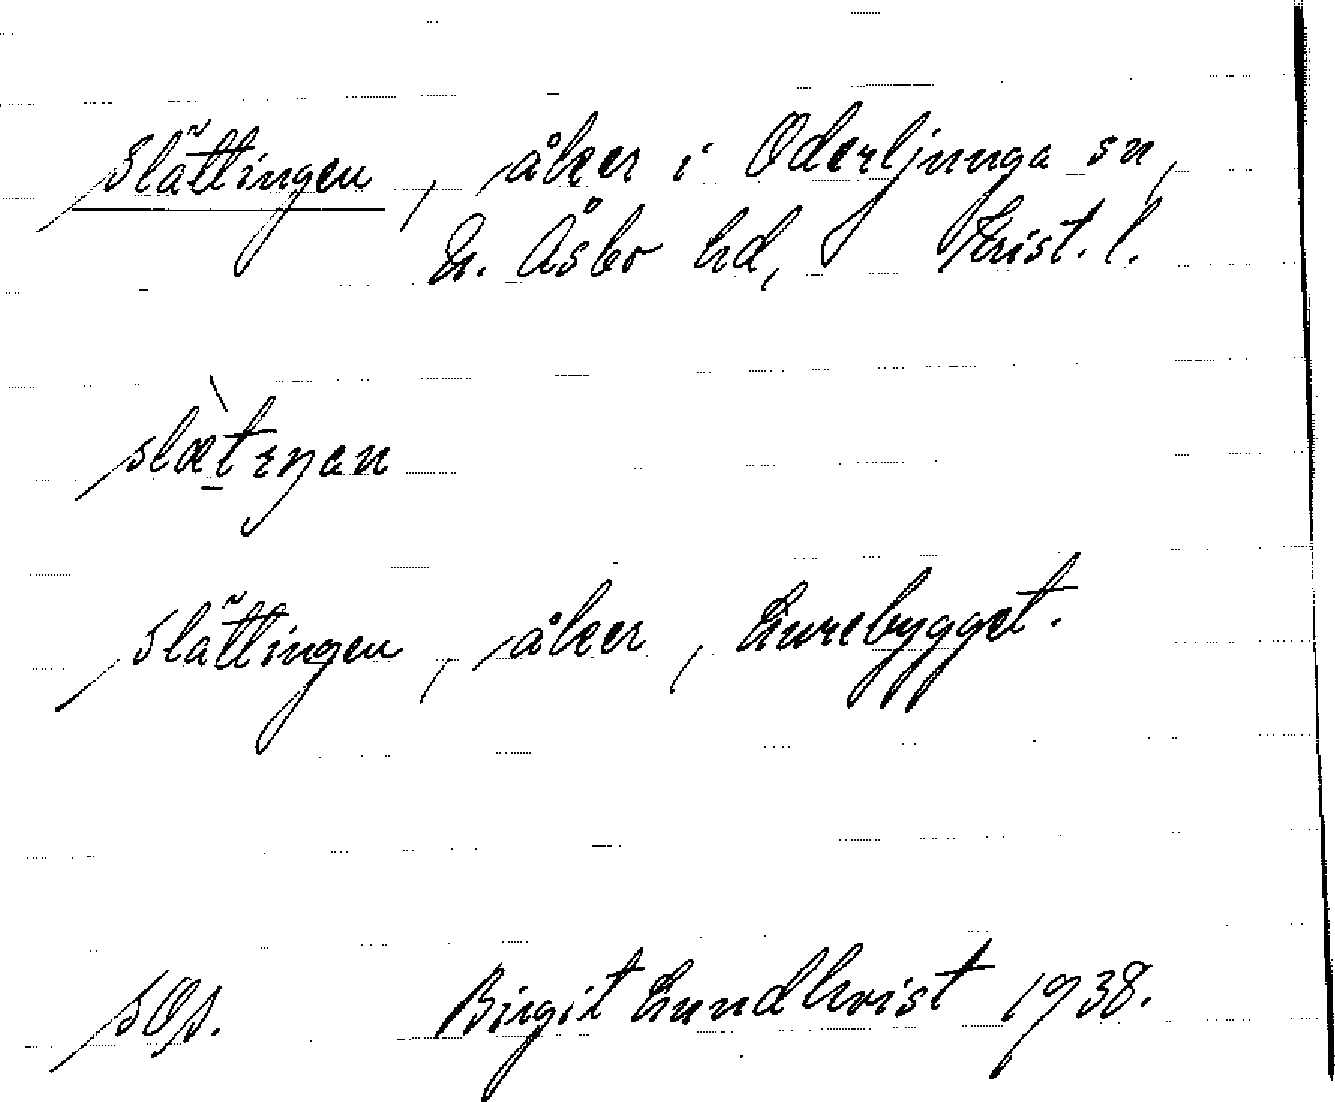 Slättingen, åker i Oderljunga sn,
N. Åsbo hd, Krist. l.
Slättingen, åker, Lurebygget.
Birgit Lundkvist 1938.